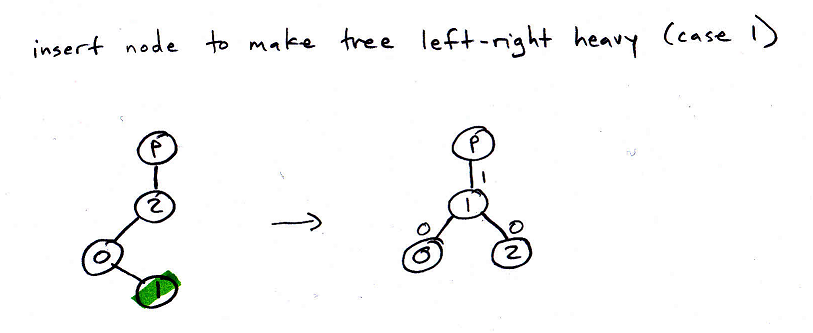 insert node to make tree left-right heavy (case 1)
P P
2 1
1 0 0
0 0 2
1